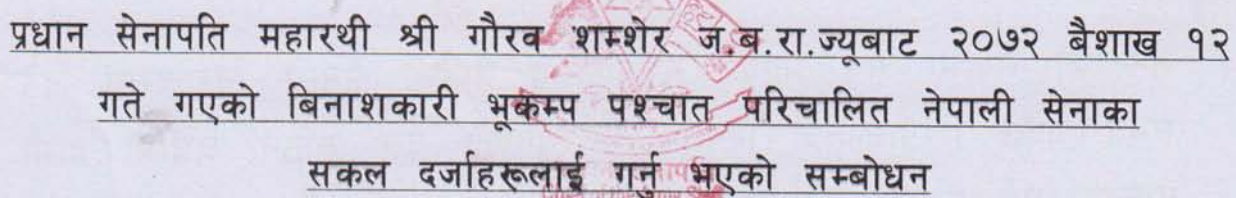 प्रधान सेनापति महारथी श्री गौरव शम्शेर ज.ब.रा.ज्यूबाट २०७२ बैशाख १२
गते गएको बिनाशकारी भूकम्प पश्चात परिचालित नेपाली सेनाका
सकल दर्जाहरूलाई गर्नु भएको सम्बोधन